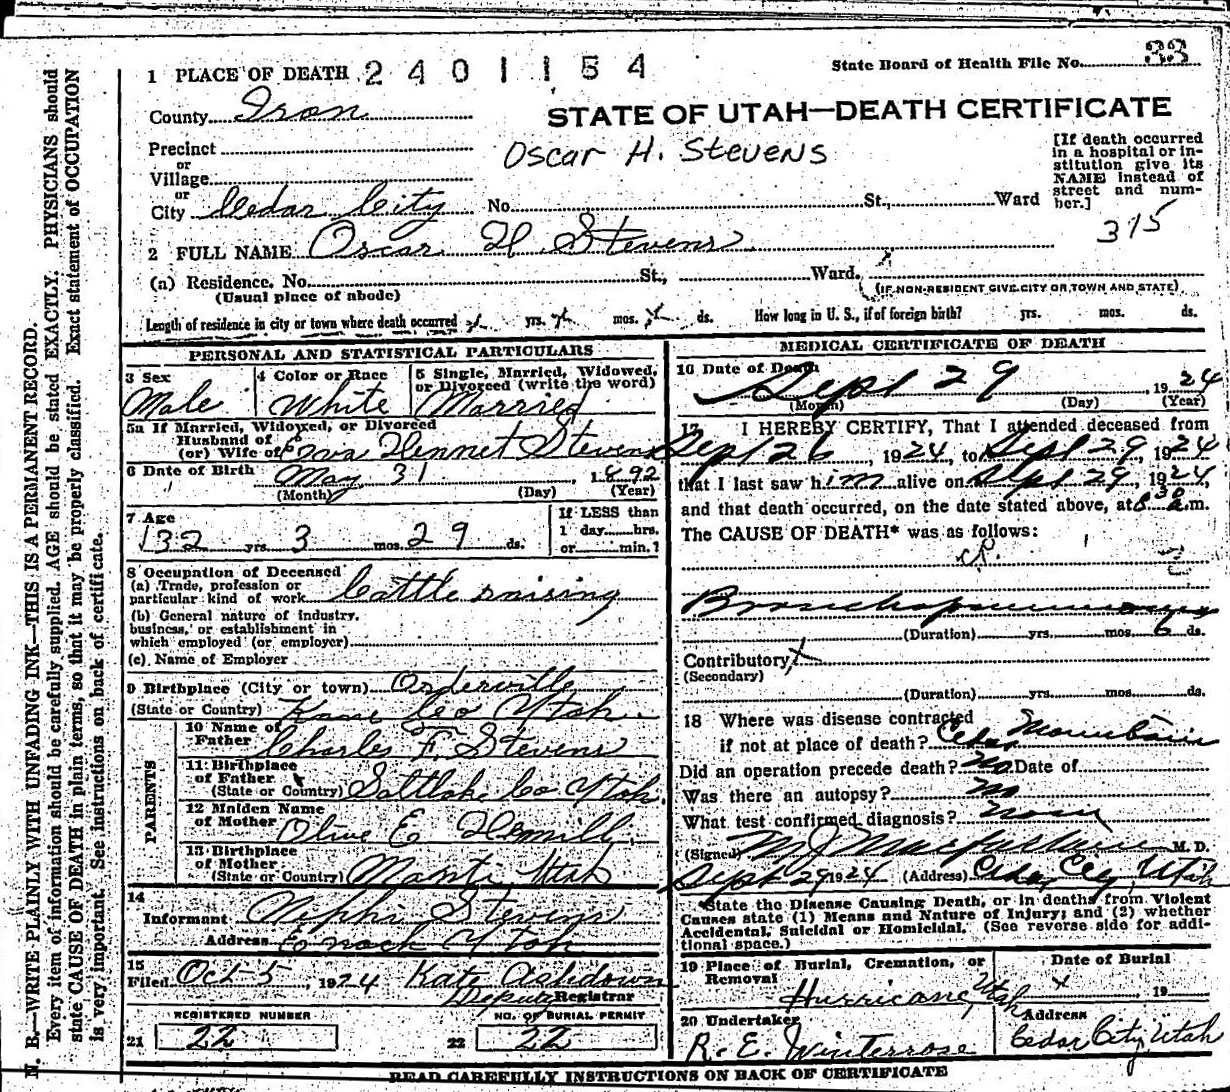 State Board of Health File No. 33
1 PLACE OF DEATH 2401154
County Iron
STATE OF UTAH—DEATH CERTIFICATE
Precinct
or
Village
or
City Cedar City No. St., Ward
Oscar H. Stevens
[If death occurred
in a hospital or in-
stitution give its
NAME instead of
street and num-
ber.]
315
2 FULL NAME Oscar H Stevens
(a) Residence. No. St., Ward.
(Usual place of abode)
(IF NON-RESIDENT GIVE CITY OR TOWN AND STATE)
Length of residence in city or town where death occurred yrs. mos. ds. How long in U. S., if of foreign birth? yrs. mos. ds.
PERSONAL AND STATISTICAL PARTICULARS
3 Sex
Male
4 Color or Race
White
5 Single, Married, Widowed,
or Divorced (write the word)
Married
5a If Married, Widowed, or Divorced
Husband of
(or) Wife of Stevens
6 Date of Birth May 31, 1892
(Month) (Day) (Year)
7 Age
32 yrs. 3 mos. 29 ds.
If LESS than
1 day hrs.
or min.?
8 Occupation of Deceased
(a) Trade, profession or
particular kind of work Cattle raising
(b) General nature of industry,
business, or establishment in
which employed (or employer)
(c) Name of Employer
9 Birthplace (City or town) Orderville
(State or Country) Kane Co Utah.
PARENTS
10 Name of
Father Charles F. Stevens
11 Birthplace
of Father
(State or Country) Saltlake Co Utah.
12 Maiden Name
of Mother Olive E
13 Birthplace
of Mother
(State or Country) Manti Utah
14
Informant Nephi Stevens
Address Enoch Utah
15
Filed Oct-5, 1924 Kate Ashdown
Deputy Registrar
REGISTERED NUMBER
21 22
NO. OF BURIAL PERMIT
22 22
MEDICAL CERTIFICATE OF DEATH
16 Date of Death
Sept 29 1924
(Month) (Day) (Year)
17 I HEREBY CERTIFY, That I attended deceased from
Sept 26, 1924, to Sept 29, 1924
that I last saw him alive on Sept 29, 1924,
and that death occurred, on the date stated above, at 8 30 a.m.
The CAUSE OF DEATH* was as follows:
Bronchopneumonia
(Duration) yrs. mos. 6 ds.
Contributory
(Secondary)
(Duration) yrs. mos. ds.
18 Where was disease contracted
if not at place of death? Cedar Mountain
Did an operation precede death? No Date of
Was there an autopsy? No
What test confirmed diagnosis? None
(Signed) M. D.
Sept 29 1924 (Address) Cedar City, Utah
*State the Disease Causing Death, or in deaths from Violent
Causes state (1) Means and Nature of Injury; and (2) whether
Accidental, Suicidal or Homicidal. (See reverse side for addi-
tional space.)
19 Place of Burial, Cremation, or
Removal
Hurricane, Utah
Date of Burial
19
20 Undertaker
R. E. Winterrose
Address
Cedar City, Utah
READ CAREFULLY INSTRUCTIONS ON BACK OF CERTIFICATE
N. B.—WRITE PLAINLY WITH UNFADING INK—THIS IS A PERMANENT RECORD.
Every item of information should be carefully supplied. AGE should be stated EXACTLY. PHYSICIANS should
state CAUSE OF DEATH in plain terms, so that it may be properly classified. Exact statement of OCCUPATION
is very important. See instructions on back of certificate.